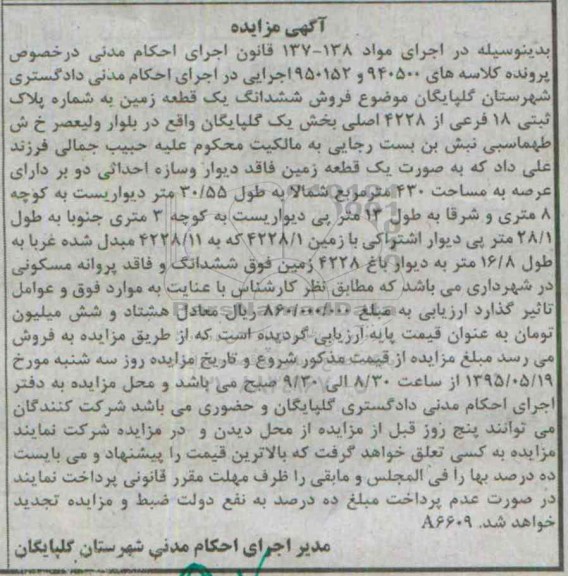 آگهی مزایده
بدینوسیله در اجرای مواد ۱۳۸-۱۳۷ قانون اجرای احکام مدنی درخصوص
پرونده کلاسه های ۹۴۰۵۰۰ و ۹۵۰۱۵۲ اجرایی در اجرای احکام مدنی دادگستری
شهرستان گلپایگان موضوع فروش ششدانگ یک قطعه زمین به شماره پلاک
ثبتی ۱۸ فرعی از ۴۲۲۸ اصلی بخش یک گلپایگان واقع در بلوار ولیعصر خ ش
طهماسبی نبش بن بست رجایی به مالکیت محکوم علیه حبیب جمالی فرزند
علی داد که به صورت یک قطعه زمین فاقد دیوار وسازه احداثی دو بر دارای
عرصه به مساحت ۴۳۰ متر مربع شمالا به طول ۳۰/۵۵ متر دیواریست به کوچه
۸ متری و شرقا به طول ۱۳ متر پی دیواریست به کوچه ۳ متری جنوبا به طول
۲۸/۱ متر پی دیوار اشتراکی با زمین ۴۲۲۸/۱ که به ۴۲۲۸/۱۱ مبدل شده غربا به
طول ۱۶/۸ متر به دیوار باغ ۴۲۲۸ زمین فوق ششدانگ و فاقد پروانه مسکونی
در شهرداری می باشد که مطابق نظر کارشناس با عنایت به موارد فوق و عوامل
تاثیر گذارد ارزیابی به مبلغ ۸۶۰/۰۰۰/۰۰۰ ریال معادل هشتاد و شش میلیون
تومان به عنوان قیمت پایه ارزیابی گردیده است که از طریق مزایده به فروش
می رسد مبلغ مزایده از قیمت مذکور شروع و تاریخ مزایده روز سه شنبه مورخ
۱۳۹۵/۰۵/۱۹ از ساعت ۸/۳۰ الی ۹/۳۰ صبح می باشد و محل مزایده به دفتر
اجرای احکام مدنی دادگستری گلپایگان و حضوری می باشد شرکت کنندگان
می توانند پنج روز قبل از مزایده از محل دیدن و در مزایده شرکت نمایند
مزایده به کسی تعلق خواهد گرفت که بالاترین قیمت را پیشنهاد و می بایست
ده درصد بها را فی المجلس و مابقی را ظرف مهلت مقرر قانونی پرداخت نمایند
در صورت عدم پرداخت مبلغ ده درصد به نفع دولت ضبط و مزایده تجدید
خواهد شد. ۸۶۶۰۹
مدیر اجرای احکام مدنی شهرستان گلپایگان